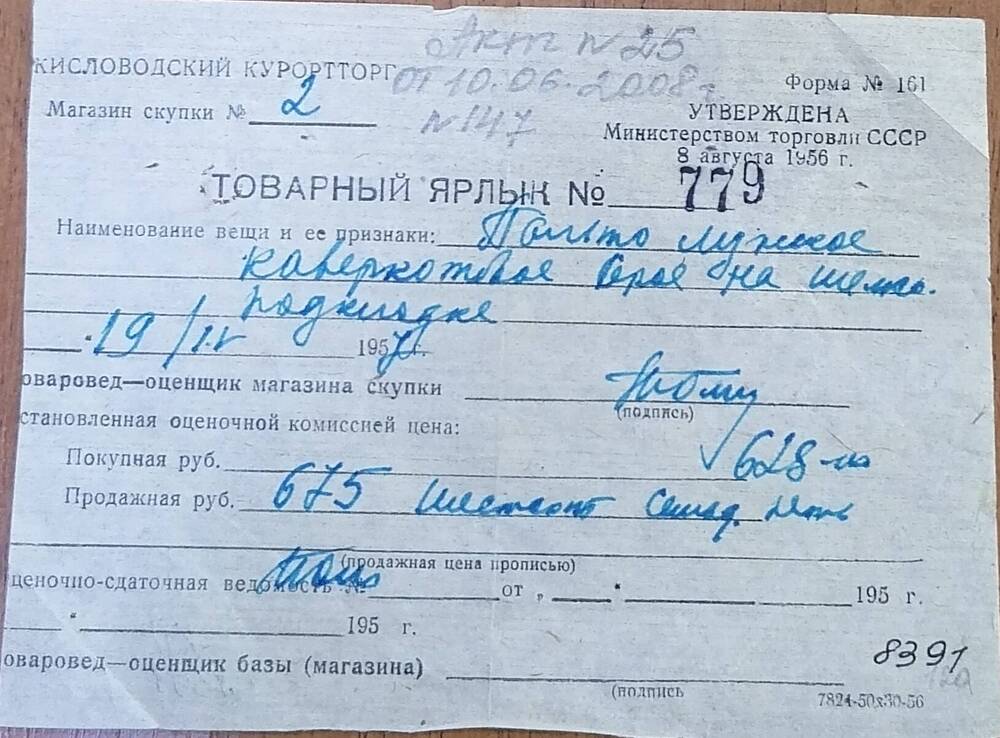 Акт № 25
от 10.06.2008г
№ 147
КИСЛОВОДСКИЙ КУРОРТТОРГ
Магазин скупки № 2
Форма № 161
УТВЕРЖДЕНА
Министерством торговли СССР
8 августа 1956 г.
ТОВАРНЫЙ ЯРЛЫК № 779
Наименование вещи и ее признаки: Пальто мужское
каверкотовое серое на шелко.
подкладке
19/IV 1957 г.
оваровед—оценщик магазина скупки
(подпись)
становленная оценочной комиссией цена:
Покупная руб. 628
Продажная руб. 675 шестьсот семьд. пять
(продажная цена прописью)
ценочно-сдаточная ведомость № от „ “ 195 г.
“ 195 г.
оваровед—оценщик базы (магазина)
(подпись
8391
7824-50х30-56